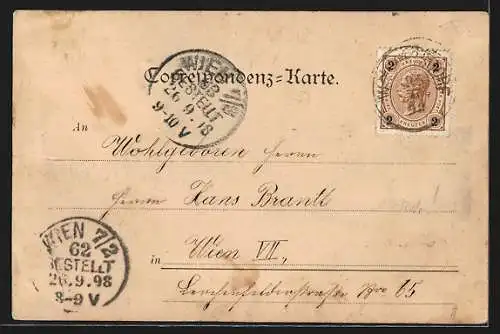 WIEN
BESTELLT
26.9.98
9-10 V
Correspondenz-Karte.
2 2
2 2
An
Wohlgeboren Herrn
Herrn Hans Brantl
in Wien VII,
Lerchenfelderstraße Nro 65
WIEN 7/2
62
BESTELLT
26.9.98
8-9 V